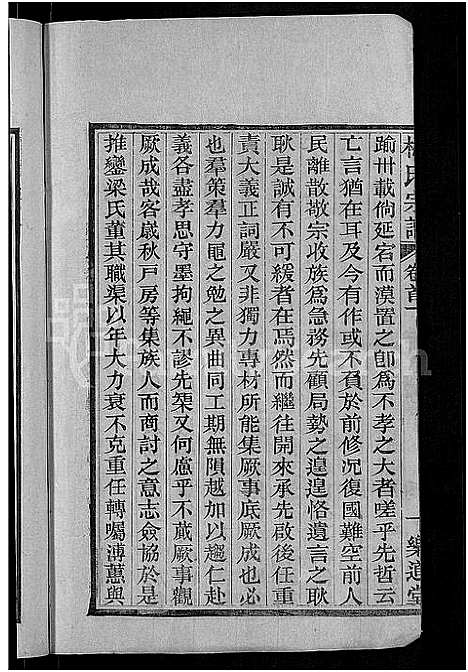 氏宗譜 卷首
踰卅載倘延宕而漠置之卽爲不孝之大者嗟乎先哲云
亡言猶在耳及今作或不負於前修況復國難空前人
民離散敬宗收族爲急務先顧局勢之遑遑恪遺言之耿
耿是誠有不可緩者在焉然而繼往開來承先啟後任重
責大義正詞嚴又非獨力專材所能集厥事底厥成也必
也羣策羣力黽之勉之異曲同工期無隕越加以趨仁赴
義各盡孝思守墨拘繩不謬先榘又何慮乎不蕆厥事觀
厥成哉客歲秋戸房等集族人而商討之意志僉協於是
推鑾梁氏董其職渠以年大力衰不克重任轉囑溥蕙與
一 樂道堂